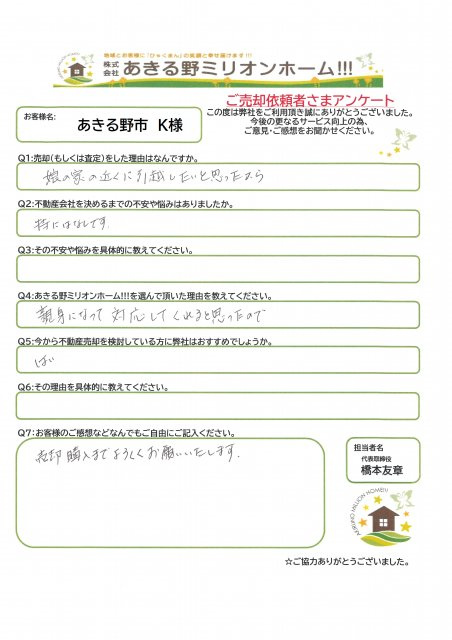 地域とお客様に「ひゃくまん」の笑顔と幸せ届けます!!!
株式会社 あきる野ミリオンホーム!!!
ご売却依頼者さまアンケート
この度は弊社をご利用頂き誠にありがとうございました。
今後の更なるサービス向上の為、
ご意見・ご感想をお聞かせください。
お客様名:
あきる野市 K様
Q1:売却(もしくは査定)をした理由はなんですか。
娘の家の近くに引越したいと思ったから
Q2:不動産会社を決めるまでの不安や悩みはありましたか。
特にはなしです。
Q3:その不安や悩みを具体的に教えてください。
Q4:あきる野ミリオンホーム!!!を選んで頂いた理由を教えてください。
親身になって対応してくれると思ったので
Q5:今から不動産売却を検討している方に弊社はおすすめでしょうか。
はい
Q6:その理由を具体的に教えてください。
Q7:お客様のご感想などなんでもご自由にご記入ください。
売却購入までよろしくお願いいたします.
担当者名
代表取締役
橋本友章
AKIRUNO MILLION HOME!!!
☆ご協力ありがとうございました。